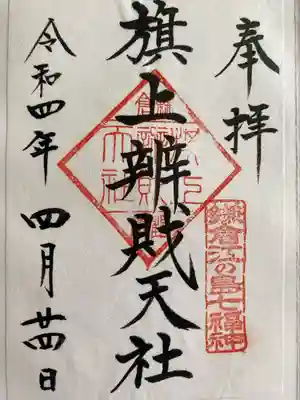 奉拝
鎌倉江の島七福神
旗上辨戝天社
令和四年 四月廿四日